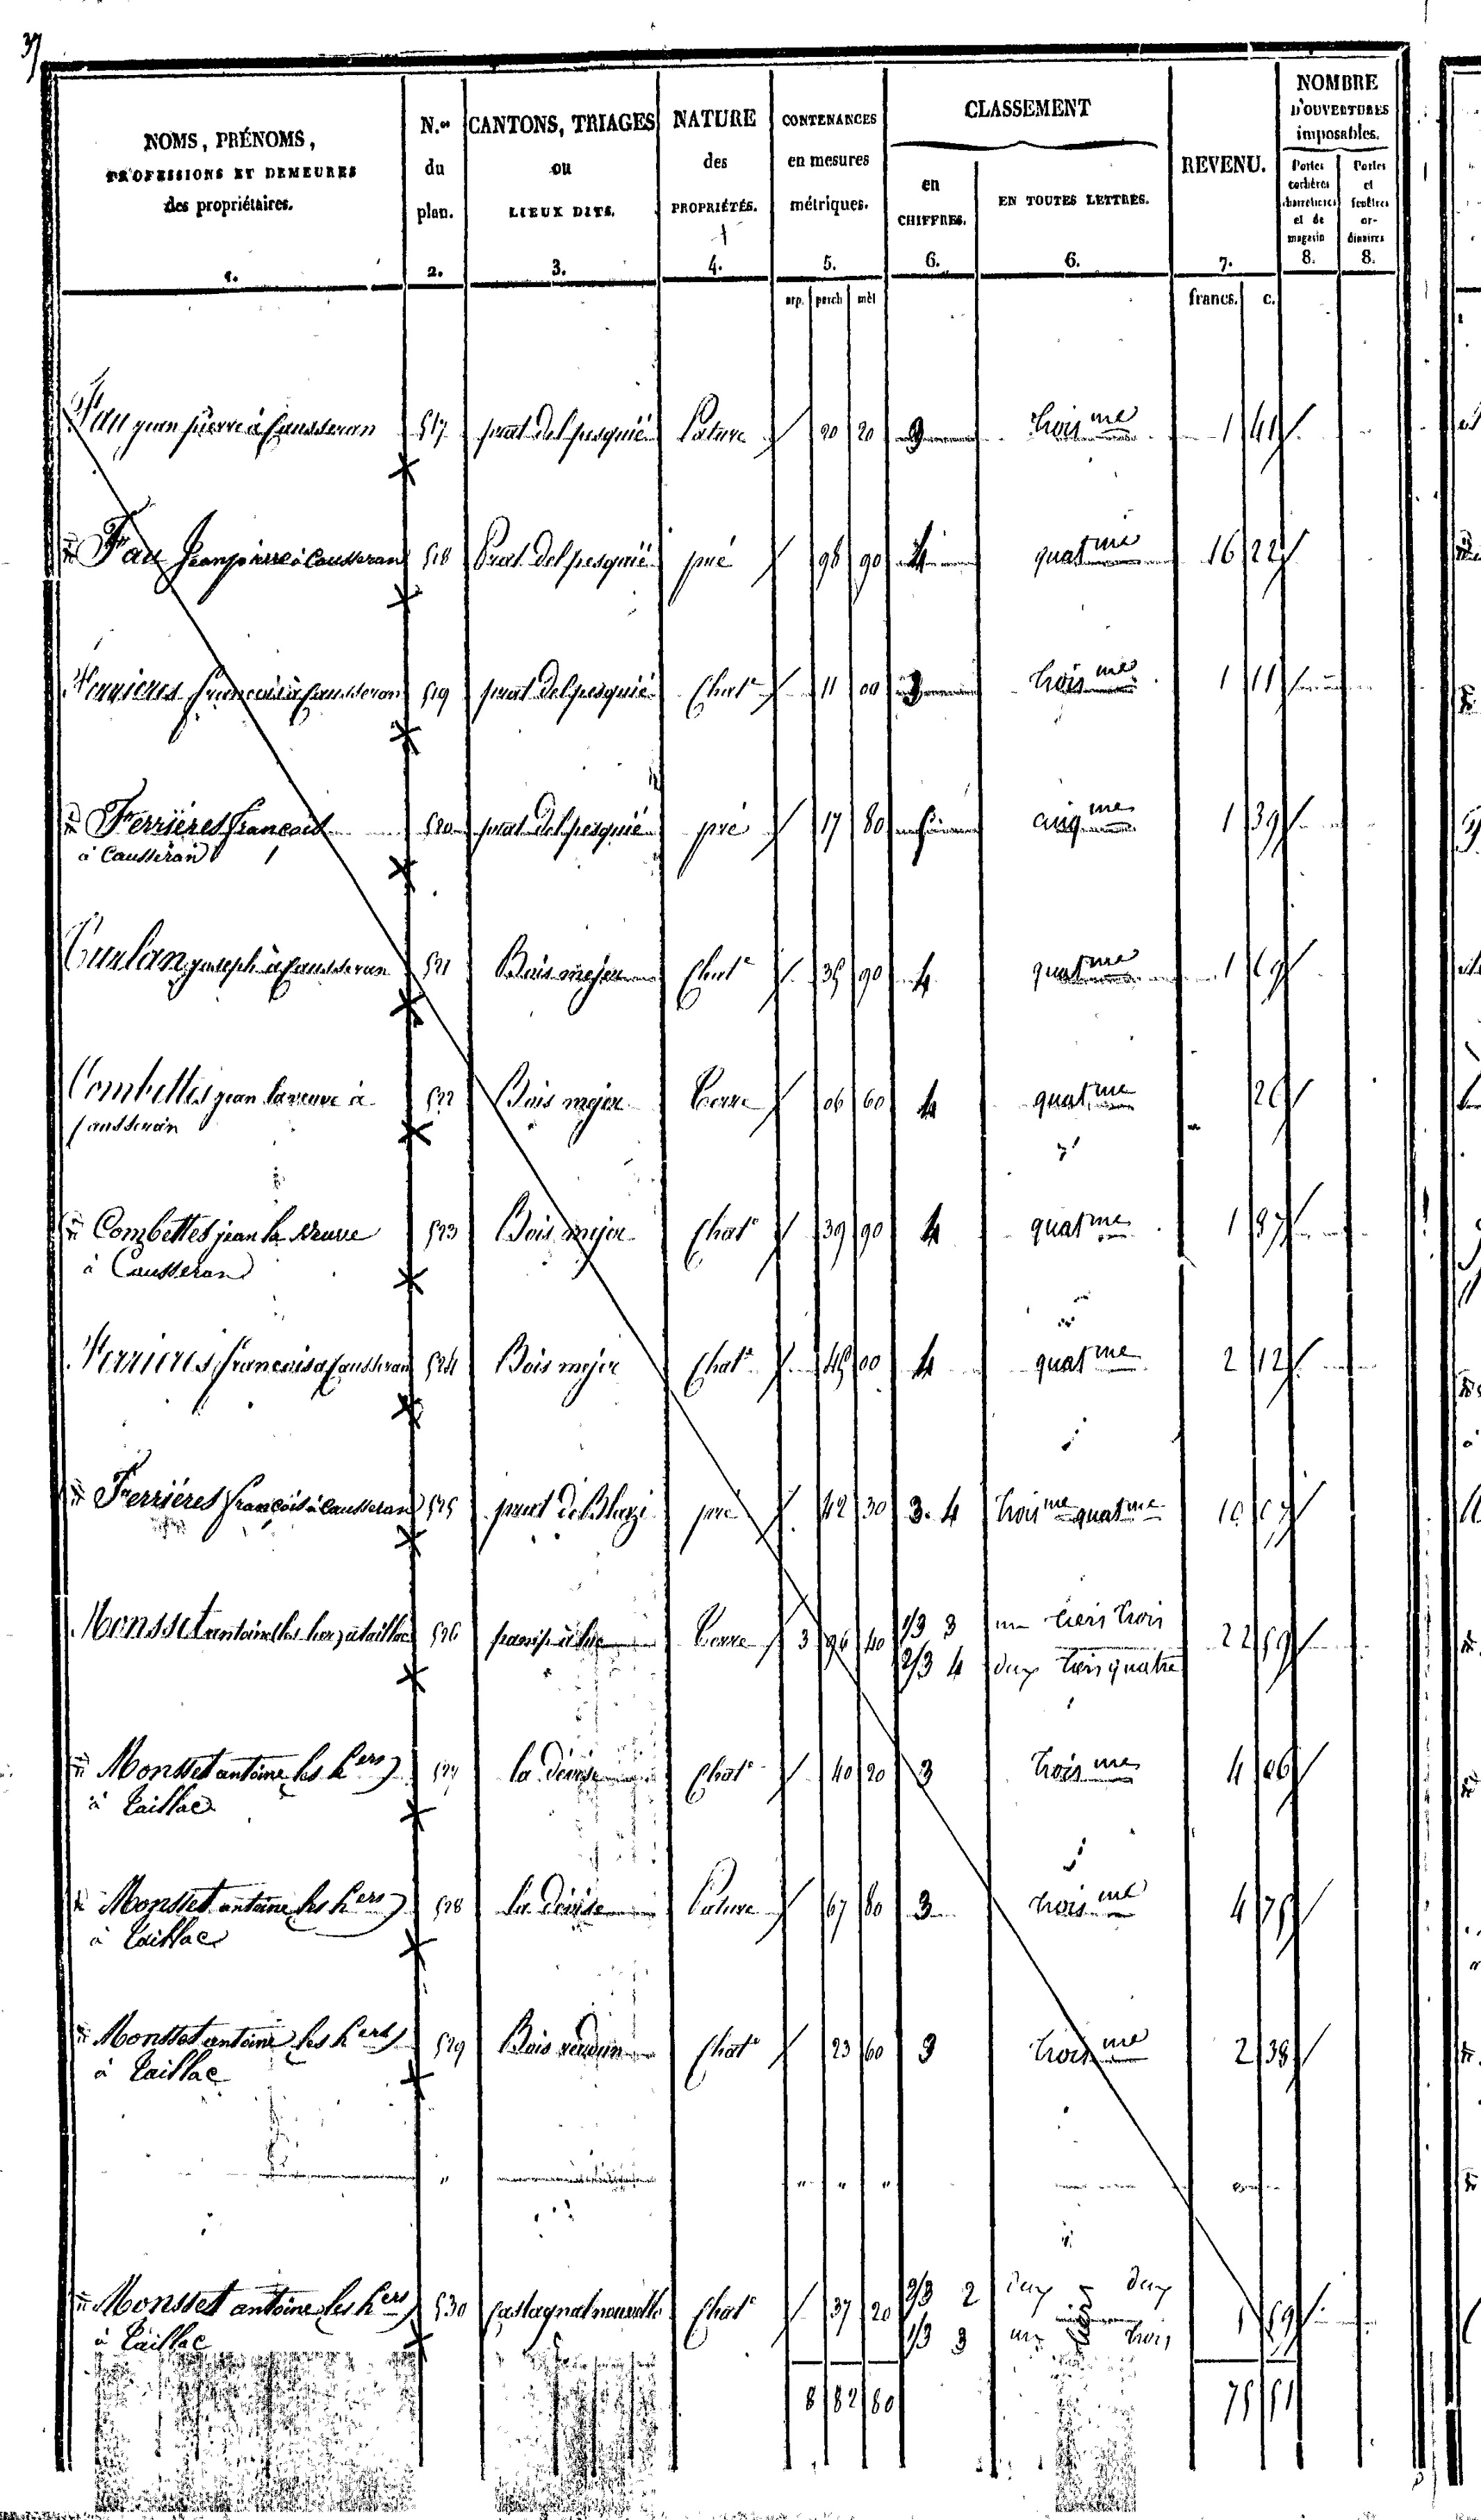 37
NOMS, PRÉNOMS, PROFESSIONS ET DEMEURES des propriétaires. 1.
N.os du plan. 2.
CANTONS, TRIAGES ou LIEUX DITS. 3.
NATURE des PROPRIÉTÉS. 4.
CONTENANCES en mesures métriques. 5.
CLASSEMENT
en CHIFFRES. 6.
EN TOUTES LETTRES. 6.
REVENU. 7.
NOMBRE D'OUVERTURES imposables.
Portes cochères charretières et de magasin 8.
Portes et fenêtres ordinaires 8.
arp. perch mèt francs. c.
Fau jean pierre à Causseran 517 prat del pesquié Pature 20 20 3 trois me 1 41
Fau Jean pierre à Causseran 518 Prat del pesquié pré 98 90 4 quat me 16 22
Ferrieres francois à Causseran 519 prat del pesquié Chat e 11 00 3 trois me 1 11
Ferriéres francois 520 prat del pesquié pré 17 80 5 cinq me 1 39
à Causseran
joseph à Causseran 521 Bois mejea Chat e 35 90 4 quat me 1 69
Combettes jean la veuve à 522 Bois mejea Terre 06 60 4 quat me 26
Causseran
Combettes jean la Veuve 523 Bois mejea Chat e 39 90 4 quat me 1 87
à Causseran
Ferrieres francois a Causseran 524 Bois mejea Chat e 45 00 4 quat me 2 12
Ferriéres francois à Causseran 525 prat de pré 42 30 3. 4 trois me quat me 10 07
Monsset antoine les hers à taillac 526 Terre 3 96 40 1/3 3 un tiers trois 22 59
2/3 4 deux tiers quatre
Monsset antoine les hers 527 la dévise Chat e 40 20 3 trois me 4 06
à Taillac
Monsset antoine les hers 528 la dévise Pature 67 80 3 trois me 4 75
à Taillac
Monsset antoine les hers 529 Bois Chat e 23 60 3 trois me 2 38
à Taillac
" " " "
Monsset antoine les hers 530 Castagnal nouvelle Chat e 37 20 2/3 2 deux tiers deux 5 59
à Taillac 1/3 3 un trois
8 82 80 75 51